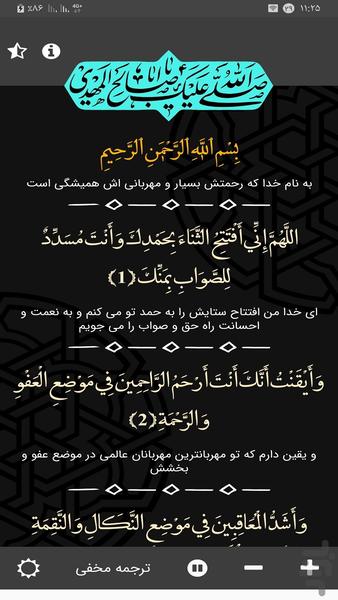 ٪۸۶ 4G+ ۷۹ ۱۱:۲۵
صلی الله علیک یا اباصالح المهدی
بِسْمِ اللَّهِ الرَّحْمَنِ الرَّحِيمِ
به نام خدا که رحمتش بسیار و مهربانی اش همیشگی است
اللَّهُمَّ إِنِّي أَفْتَتِحُ الثَّنَاءَ بِحَمْدِكَ وَأَنْتَ مُسَدِّدٌ
لِلصَّوَابِ بِمَنِّكَ (1)
ای خدا من افتتاح ستایش را به حمد تو می کنم و به نعمت و
احسانت راه حق و صواب را می جویم
وَأَيْقَنْتُ أَنَّكَ أَنْتَ أَرْحَمُ الرَّاحِمِينَ فِي مَوْضِعِ الْعَفْوِ
وَالرَّحْمَةِ (2)
و یقین دارم که تو مهربانترین مهربانان عالمی در موضع عفو و
بخشش
وَأَشَدُّ الْمُعَاقِبِينَ فِي مَوْضِعِ النَّكَالِ وَالنَّقِمَةِ
ترجمه مخفی